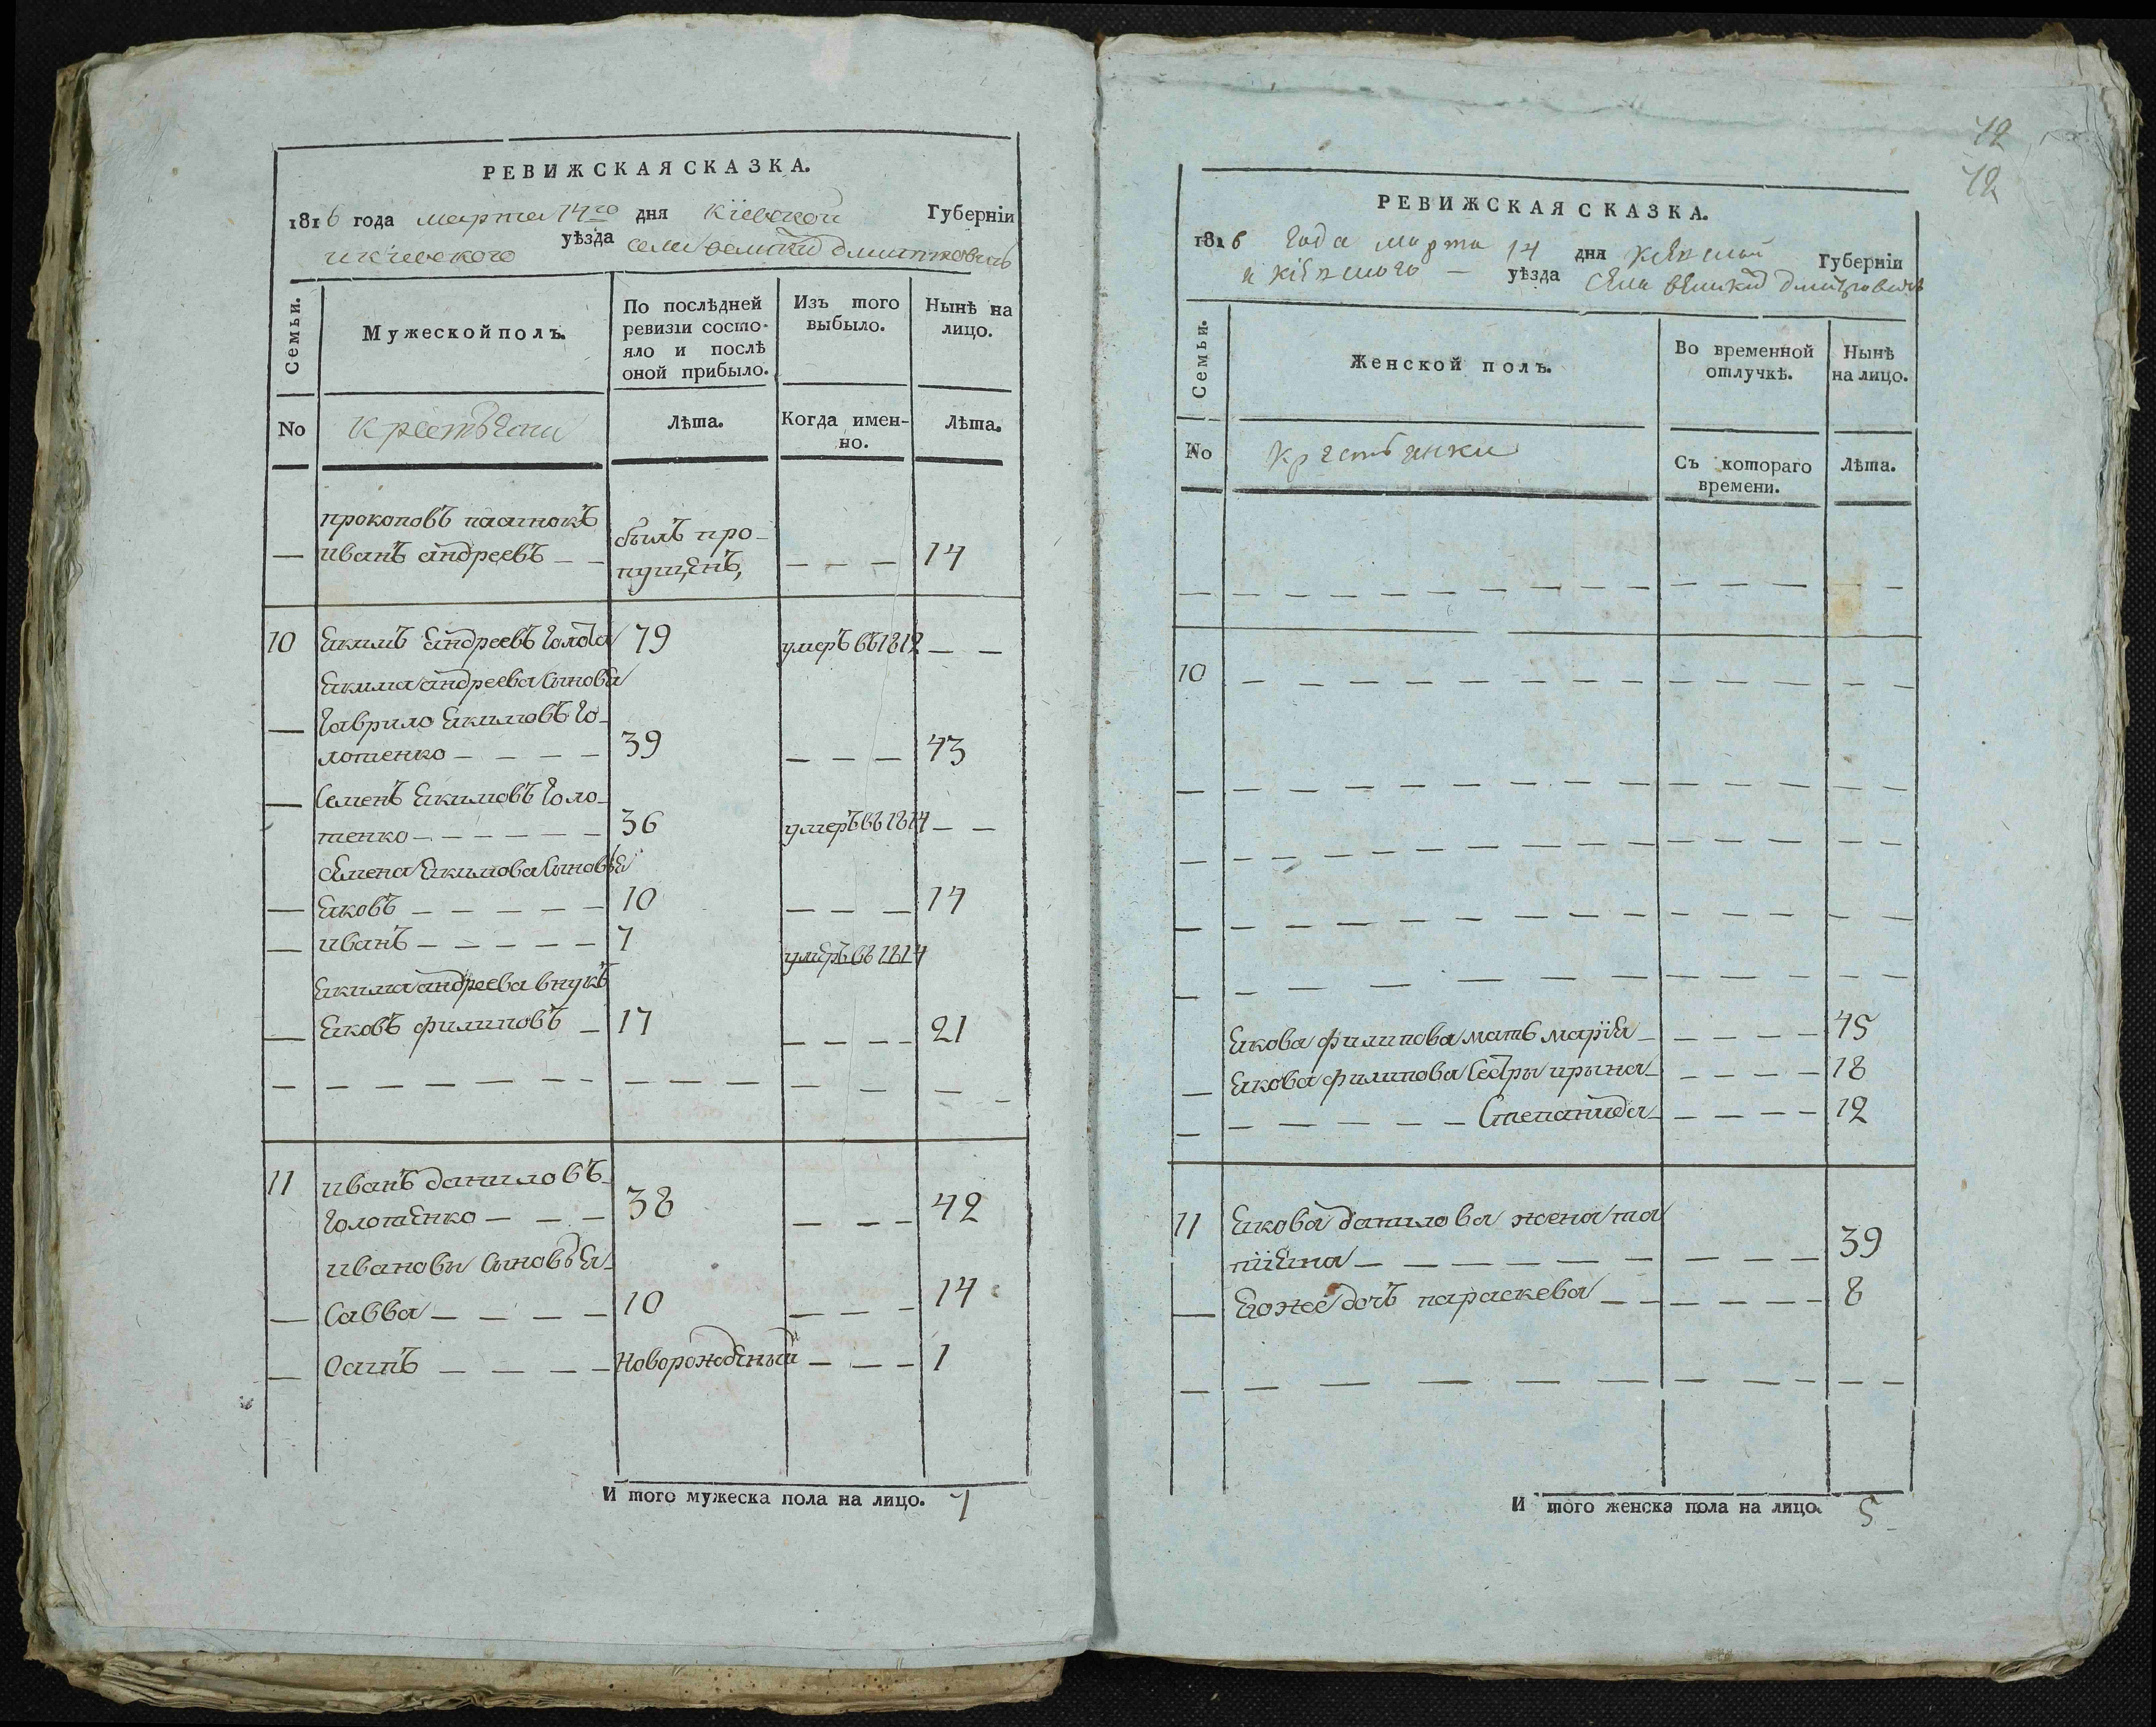 РЕВИЖСКАЯ СКАЗКА.
1816 года марта 14го дня Кіевской Губерніи
икіевского уѣзда села великихъ дмитровичъ
Семьи. Мужеской полъ. По послѣдней ревизіи состояло и послѣ оной прибыло. Изъ того выбыло. Нынѣ на лицо.
No крестьяни Лѣта. Когда именно. Лѣта.
прокоповъ пасинокъ
— иванъ андреевъ — — былъ пропущенъ, — — — 14
10 Екимъ андреевъ Голота 79 умеръ въ 1812 — —
Екима андреева Сыновья
— Гаврило Екимовъ Го-
лотенко — — — — 39 — — — 43
— Семенъ Екимовъ Голо-
тенко — — — — — — 36 умеръ въ 1814 — —
Семена Екимова Сыновья
— Яковъ — — — — — 10 — — — 14
— иванъ — — — — — 7 умеръ въ 1814
Екима андреева внукъ
— Яковъ филиповъ — 17 — — — — 21
11 иванъ даниловъ
Голотенко — — — 38 — — — 42
ивановы Сыновья
— Савва — — — — 10 — — — 14
— Осипъ — — — — Новорожденый — — — 1
И того мужеска пола на лицо. 7
42
42
РЕВИЖСКАЯ СКАЗКА.
1816 Года марта 14 дня Кіевской Губерніи
и кіевского — уѣзда села великихъ дмитровичъ
Семьи. Женской полъ. Во временной отлучкѣ. Нынѣ на лицо.
No Крестьянки Съ котораго времени. Лѣта.
10
Якова филипова мать марія — — — — — 45
— Якова филипова Сестры ирина — — — — — 18
— — — — — — — Степанида — — — — — 12
11 Якова данилова жена та
тіяна — — — — — — — — — — 39
— Еюже дочъ параскева — — — — — — 8
И того женска пола на лицо. 5